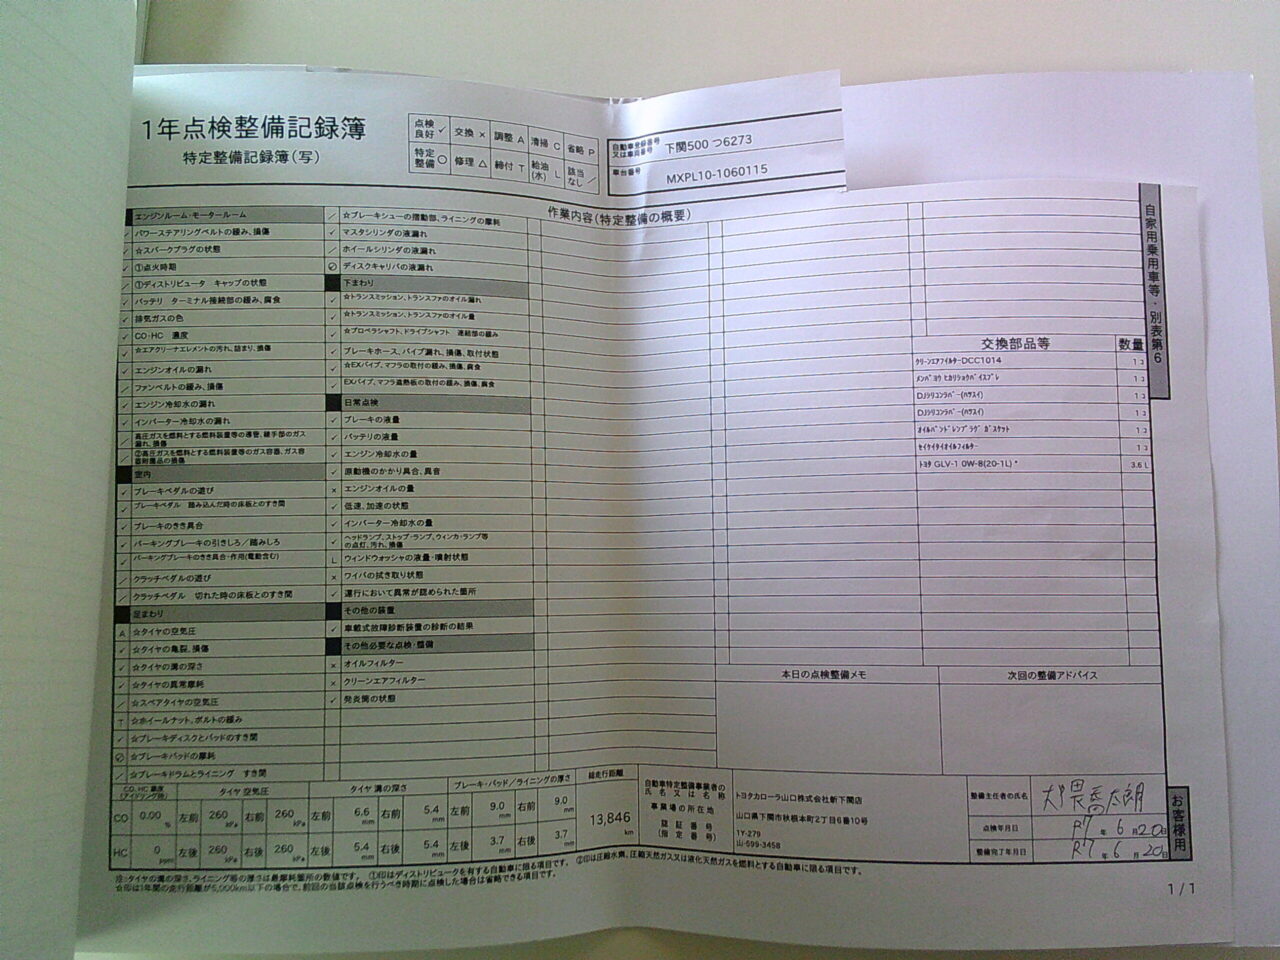 1年点検整備記録簿
特定整備記録簿(写)
点検良好 ✓ 交換 × 調整 A 清掃 C 省略 P
特定整備 ○ 修理 △ 締付 T 給油(水) L 該当なし ／
自動車登録番号又は車両番号 下関500 つ6273
車台番号 MXPL10-1060115
作業内容(特定整備の概要)
エンジンルーム・モータールーム
✓ パワーステアリングベルトの緩み、損傷
✓ ☆スパークプラグの状態
✓ ①点火時期
／ ①ディストリビュータ キャップの状態
✓ バッテリ ターミナル接続部の緩み、腐食
✓ 排気ガスの色
✓ CO・HC 濃度
✓ ☆エアクリーナエレメントの汚れ、詰まり、損傷
✓ エンジンオイルの漏れ
✓ ファンベルトの緩み、損傷
✓ エンジン冷却水の漏れ
✓ インバーター冷却水の漏れ
／ 高圧ガスを燃料とする燃料装置等の導管、継手部のガス漏れ、損傷
／ ②高圧ガスを燃料とする燃料装置等のガス容器、ガス容器附属品の損傷
室内
✓ ブレーキペダルの遊び
✓ ブレーキペダル 踏み込んだ時の床板とのすき間
✓ ブレーキのきき具合
✓ パーキングブレーキの引きしろ／踏みしろ
✓ パーキングブレーキのきき具合・作用(電動含む)
／ クラッチペダルの遊び
／ クラッチペダル 切れた時の床板とのすき間
足まわり
A ☆タイヤの空気圧
✓ ☆タイヤの亀裂、損傷
✓ ☆タイヤの溝の深さ
✓ ☆タイヤの異常摩耗
／ ☆スペアタイヤの空気圧
T ☆ホイールナット、ボルトの緩み
✓ ☆ブレーキディスクとパッドのすき間
☆ブレーキパッドの摩耗
／ ☆ブレーキドラムとライニング すき間
／ ☆ブレーキシューの摺動部、ライニングの摩耗
✓ マスタシリンダの液漏れ
／ ホイールシリンダの液漏れ
ディスクキャリパの液漏れ
下まわり
✓ ☆トランスミッション、トランスファのオイル漏れ
✓ ☆トランスミッション、トランスファのオイル量
✓ ☆プロペラシャフト、ドライブシャフト 連結部の緩み
✓ ブレーキホース、パイプ漏れ、損傷、取付状態
✓ ☆EXパイプ、マフラの取付の緩み、損傷、腐食
✓ EXパイプ、マフラ遮熱板の取付の緩み、損傷、腐食
日常点検
✓ ブレーキの液量
✓ バッテリの液量
✓ エンジン冷却水の量
✓ 原動機のかかり具合、異音
× エンジンオイルの量
✓ 低速、加速の状態
✓ インバーター冷却水の量
✓ ヘッドランプ、ストップ・ランプ、ウィンカ・ランプ等の点灯、汚れ、損傷
L ウィンドウォッシャの液量・噴射状態
× ワイパの拭き取り状態
✓ 運行において異常が認められた箇所
その他の装置
✓ 車載式故障診断装置の診断の結果
その他必要な点検・整備
× オイルフィルター
× クリーンエアフィルター
✓ 発炎筒の状態
交換部品等 数量
クリーンエアフィルターDCC1014 1コ
メンバヨウ ヒカリショクバイスプレ 1コ
DJシリコンラバー(ハサスイ) 1コ
DJシリコンラバー(ハサスイ) 1コ
オイルパンドレンプラグ ガスケット 1コ
セイケイタイオイルフィルター 1コ
トヨタ GLV-1 0W-8(20-1L)* 3.6L
自家用乗用車等・別表第6
本日の点検整備メモ 次回の整備アドバイス
CO、HC 濃度(アイドリング時) タイヤ 空気圧 タイヤ 溝の深さ ブレーキ・パッド／ライニングの厚さ 総走行距離
CO 0.00 % 左前 260 kPa 右前 260 kPa 左前 6.6 mm 右前 5.4 mm 左前 9.0 mm 右前 9.0 mm 13,846 km
HC 0 ppm 左後 260 kPa 右後 260 kPa 左後 5.4 mm 右後 5.4 mm 左後 3.7 mm 右後 3.7 mm
自動車特定整備事業者の氏名又は名称 トヨタカローラ山口株式会社新下関店
事業場の所在地 山口県下関市秋根本町2丁目6番10号
認証番号(指定番号) 1Y-279
山-599-3458
整備主任者の氏名
点検年月日 R7年6月20日
整備完了年月日 R7年6月20日
お客様用
注:タイヤの溝の深さ、ライニング等の厚さは最摩耗箇所の数値です。 ①印はディストリビュータを有する自動車に限る項目です。 ②印は圧縮水素、圧縮天然ガス又は液化天然ガスを燃料とする自動車に限る項目です。
☆印は1年間の走行距離が5,000km以下の場合で、前回の当該点検を行うべき時期に点検した場合は省略できる項目です。
1/1